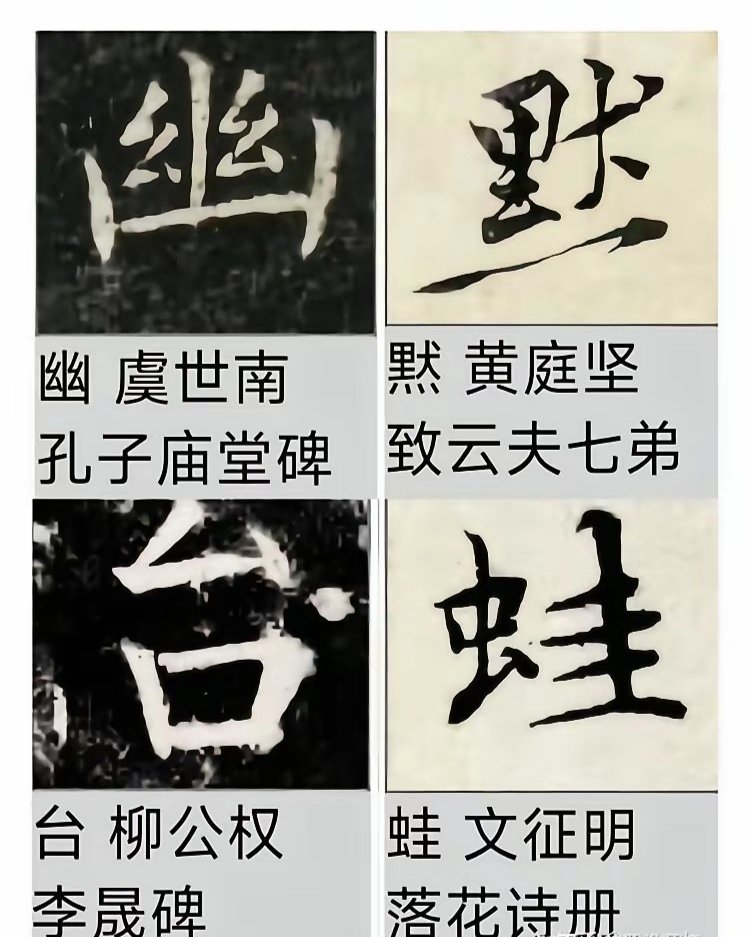 幽
默
幽 虞世南
孔子庙堂碑
默 黄庭坚
致云夫七弟
台
蛙
台 柳公权
李晟碑
蛙 文征明
落花诗册